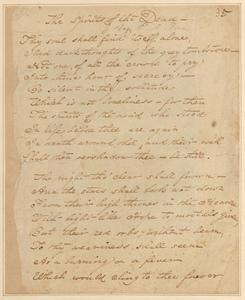 The Spirits of the Dead —
35
Thy soul shall find itself alone
'Mid dark thoughts of the grey tomb-stone —
Not one of all the crowd to pry
Into thine hour of secrecy:
Be silent in the solitude
Which is not loneliness — for then
The spirits of the dead who stood
In life before thee are again
In death around thee, and their will
Shall then overshadow thee — be still:
The night, tho' clear, shall frown —
And the stars shall look not down
From their high thrones in the Heaven
With light like Hope to mortals giv'n
But their red orbs, without beam,
To thy weariness shall seem
As a burning & a fever
Which would cling to thee forever